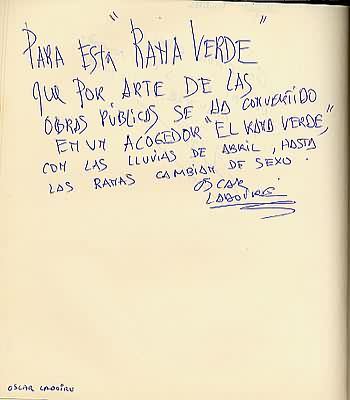 PARA ESTA "RANA VERDE"
QUE POR ARTE DE LAS
OBRAS PÚBLICAS SE HA CONVERTIDO
EN UN ACOGEDOR "EL RANA VERDE",
CON LAS LLUVIAS DE ABRIL, HASTA
LAS RANAS CAMBIAN DE SEXO.
OSCAR
LADOIRE
OSCAR LADOIRE